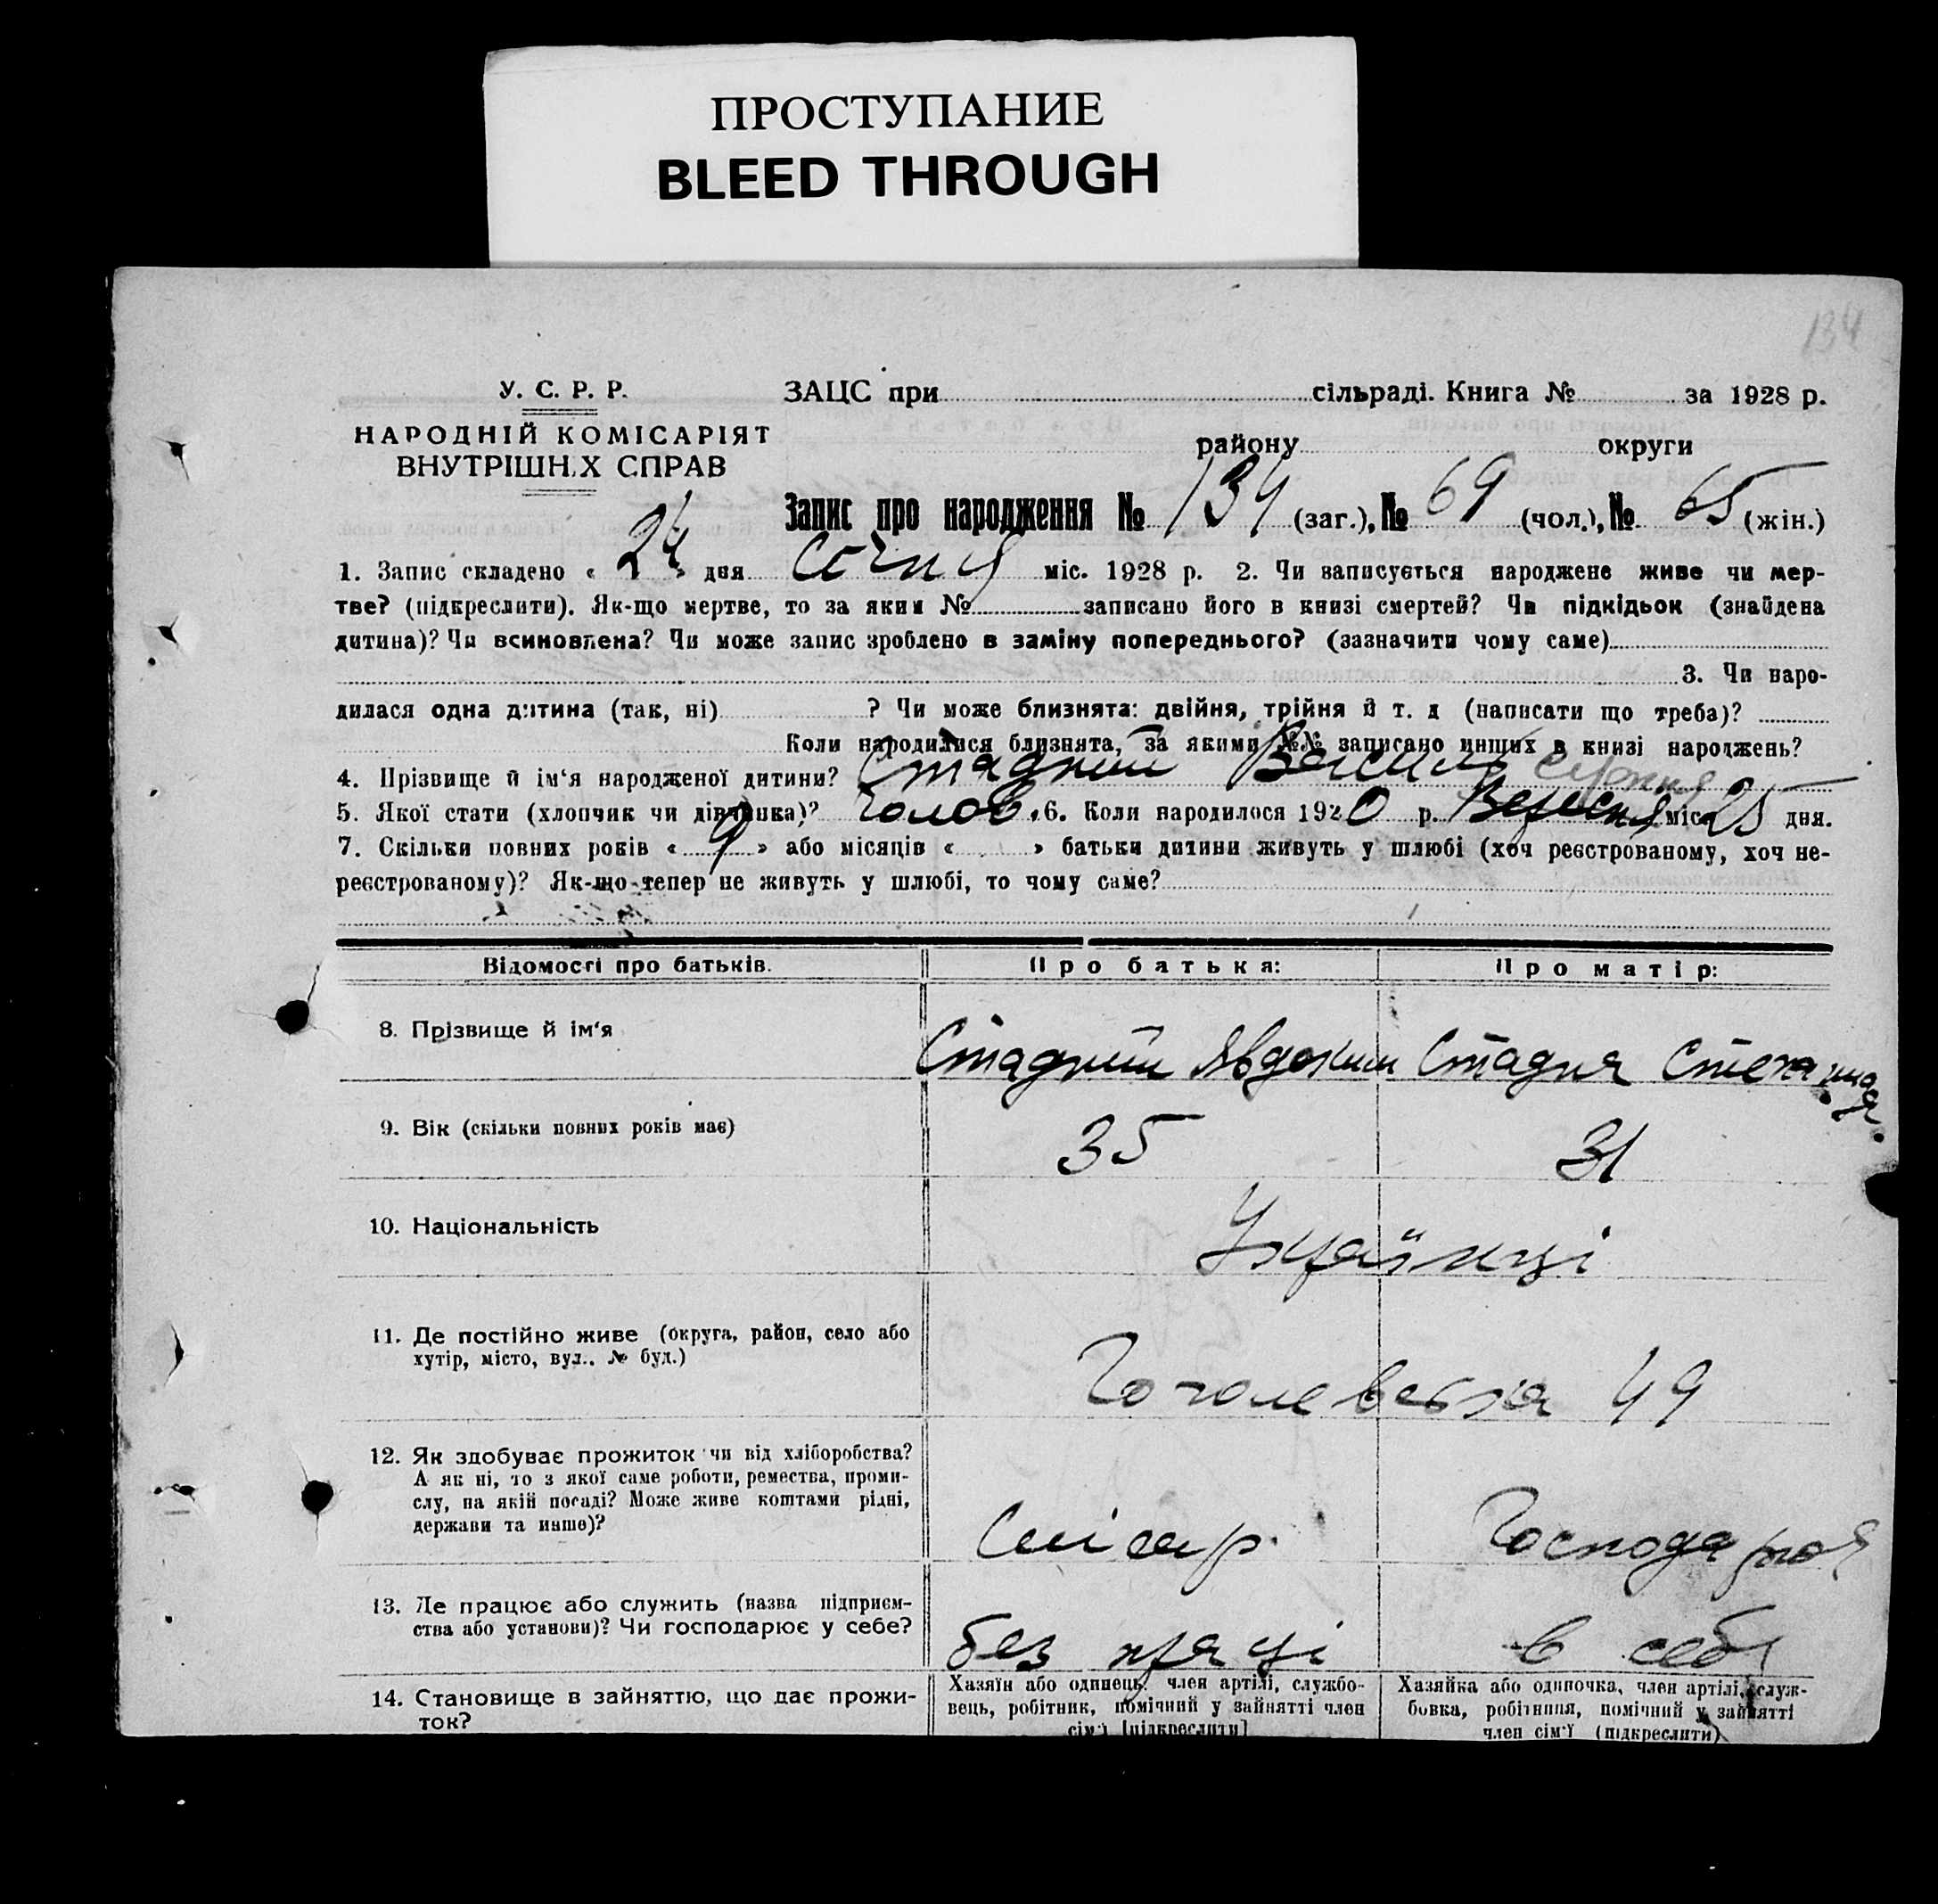 ПРОСТУПАНИЕ
BLEED THROUGH
134
У. С. Р. Р.
НАРОДНІЙ КОМІСАРІЯТ
ВНУТРІШНІХ СПРАВ
ЗАЦС при сільраді. Книга № за 1928 р.
району округи
Запис про народження № 134 (заг.), № 69 (чол.), № 65 (жін.)
1. Запис складено « 24 » дня Січня міс. 1928 р. 2. Чи записується народжене живе чи мер-
тве? (підкреслити). Як-що мертве, то за яким № записано його в книзі смертей? Чи підкідьок (знайдена
дитина)? Чи всиновлена? Чи може запис зроблено в заміну попереднього? (зазначити чому саме)
3. Чи наро-
дилася одна дитина (так, ні) ? Чи може близнята: двійня, трійня й т. д (написати що треба)?
Коли народилися близнята, за якими №№ записано инших в книзі народжень?
4. Прізвище й ім'я народженої дитини? Стадний Василь
серпня
5. Якої стати (хлопчик чи дівчинка)? Голов. 6. Коли народилося 1920 р. Вересня міс. 25 дня.
7. Скільки повних років « 9 » або місяців « » батьки дитини живуть у шлюбі (хоч реєстрованому, хоч не-
реєстрованому)? Як-що тепер не живуть у шлюбі, то чому саме?
Відомості про батьків. Про батька: Про матір:
8. Прізвище й ім'я Стадний Явдоким Стадня Степанида.
9. Вік (скільки повних років має) 35 31
10. Національність Українці
11. Де постійно живе (округа, район, село або
хутір, місто, вул.. № буд.) Гоголевська 49
12. Як здобуває прожиток чи від хліборобства?
А як ні, то з якої саме роботи, ремества, проми-
слу, на якій посаді? Може живе коштами рідні,
держави та инше)? Слісар. Господарка
13. Де працює або служить (назва підприєм-
ства або установи)? Чи господарює у себе? без праці в себе
14. Становище в зайняттю, що дає прожи-
ток?
Хазяїн або одинець, член артілі, службо-
вець, робітник, помічний у зайнятті член
сім'ї [підкреслити]
Хазяйка або одиночка, член артілі, служ-
бовка, робітниця, помічний у зайнятті
член сім'ї (підкреслити)